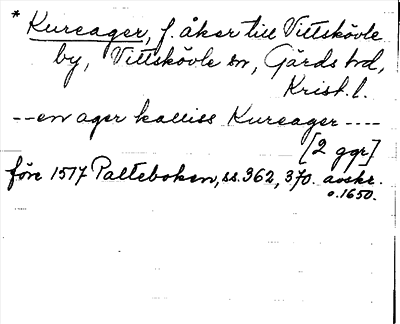 * Kureager, f. åker till Vittskövle
by, Vittskövle sn, Gärds hd,
Krist. l.
-- en ager kalliss Kureager ----
[2 ggr]
före 1517 Palteboken, ss. 362, 370. avskr.
o. 1650.